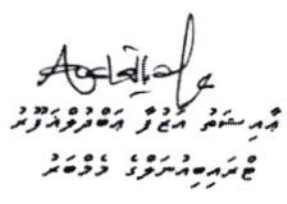 ޢާއިޝަތު އަޒްފާ ޢަބްދުލްޣަފޫރު
ޓްރައިބިއުނަލްގެ މެމްބަރު